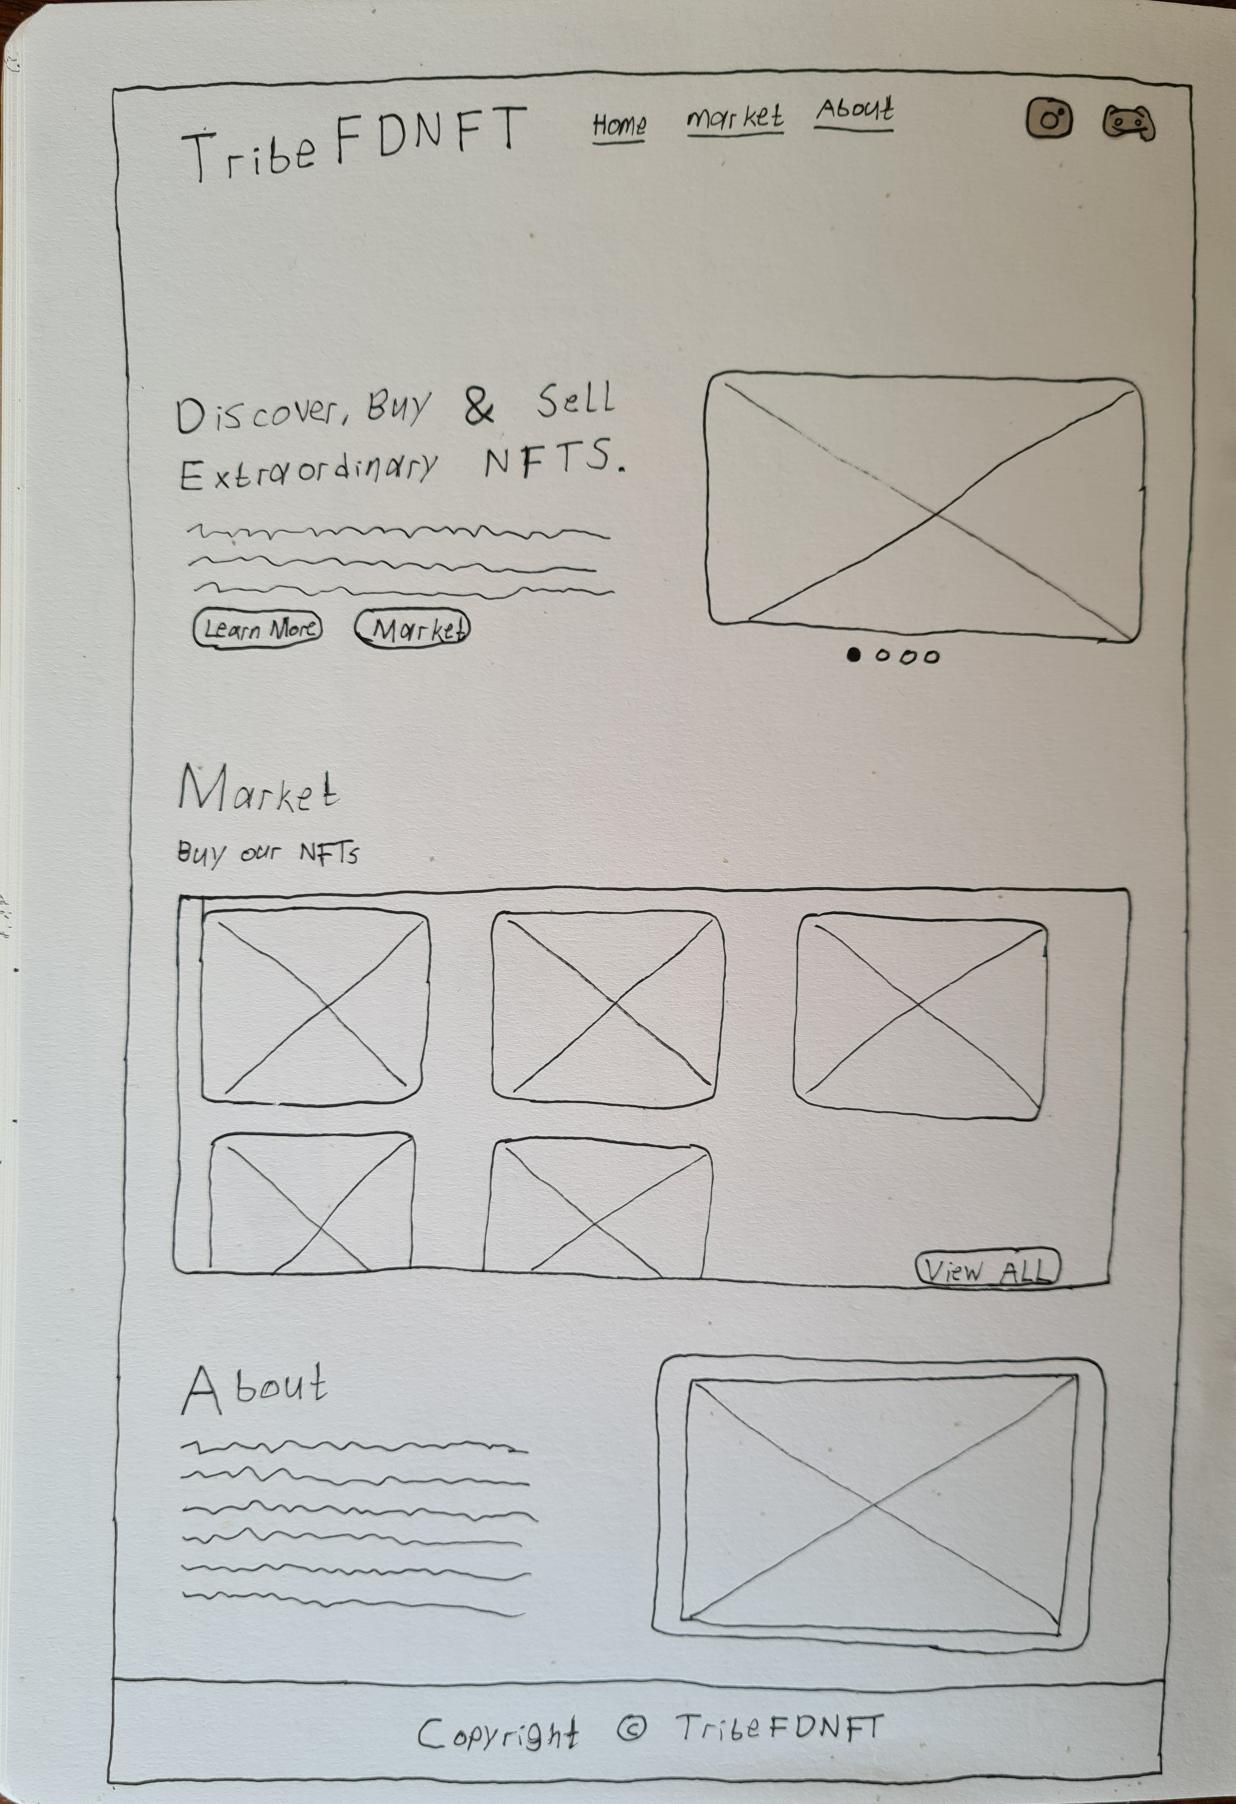 TribeFDNFT Home market About
Discover, Buy & Sell
Extraordinary NFTS.
Learn More Market
Market
Buy our NFTs
View ALL
About
Copyright © TribeFDNFT